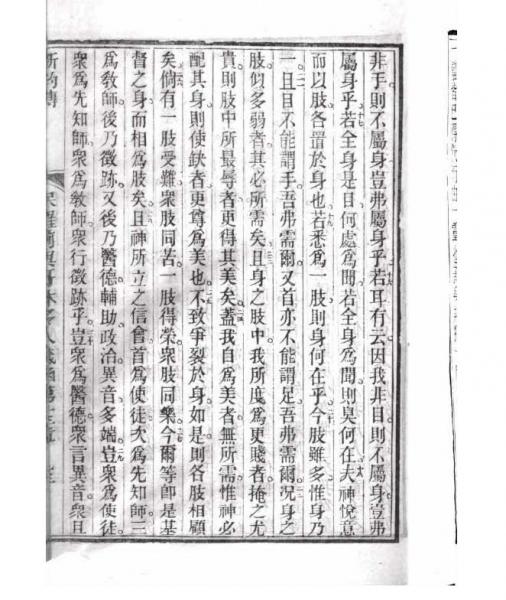 非手則不屬身豈弗屬身乎若耳有云因我非目則不屬身豈弗
屬身乎若全身是目何處為聞若全身為聞則臭何在夫神悅意
而以肢各置於身也若悉為一肢則身何在乎今肢雖多惟身乃
一且目不能謂手吾弗需爾又首亦不能謂足吾弗需爾況身之
肢似多弱者其必所需矣且身之肢中我所度為更賤者掩之尤
貴則肢中所最辱者更得其美矣蓋我自為美者無所需惟神必
配其身則使缺者更尊為美也不致爭裂於身如是則各肢相顧
矣倘有一肢受難眾肢同苦一肢得榮眾肢同樂今爾等即是基
督之身而相為肢矣且神所立之信會首為使徒次為先知師三
為教師後乃徵跡又後乃醫德輔助政治異音多端豈眾為使徒
眾為先知師眾為教師眾行徵跡乎豈眾為醫德眾言異音眾且